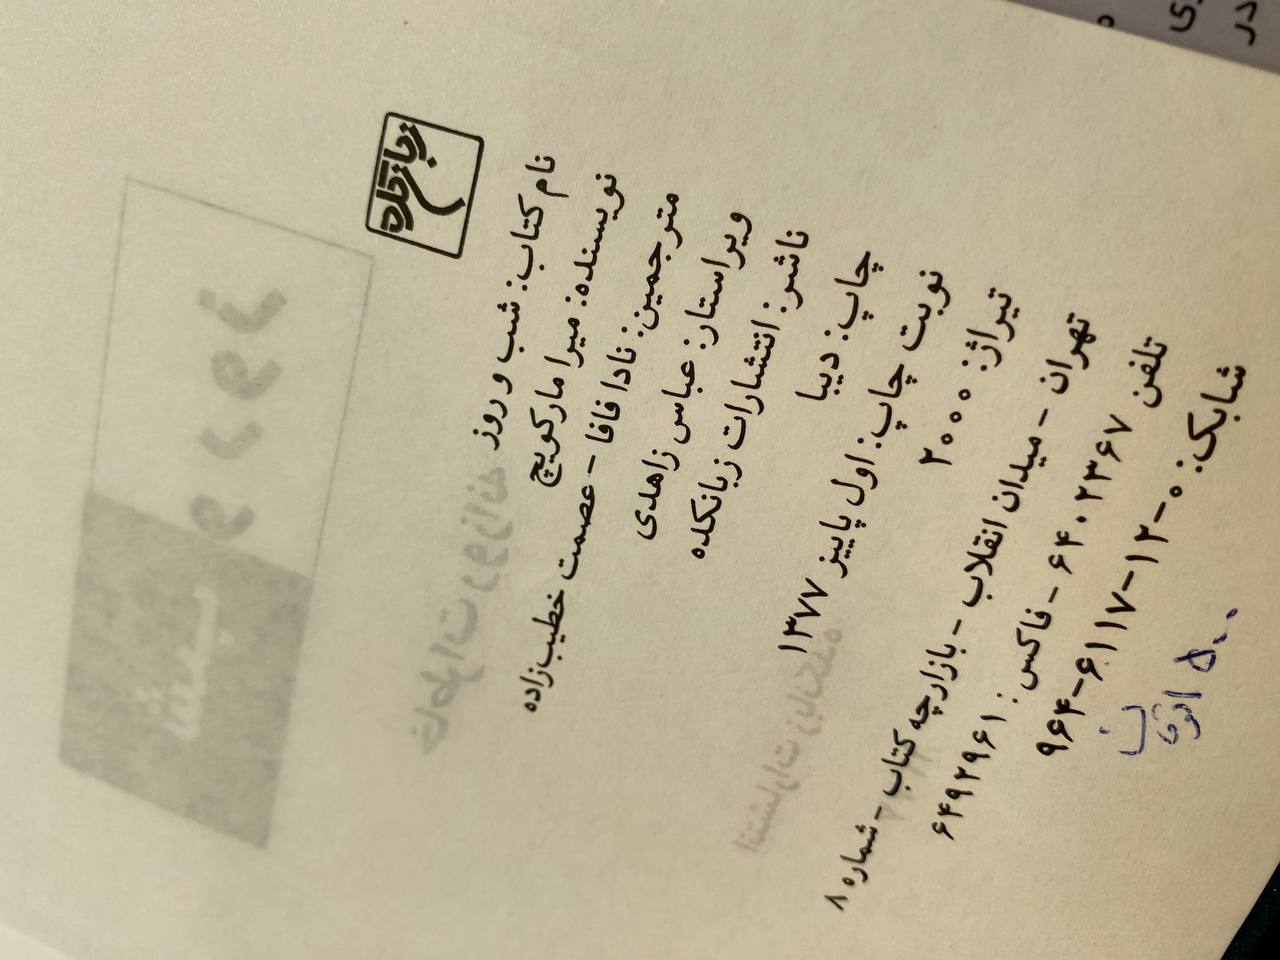 زبانکده
نام کتاب: شب و روز
نویسنده: میرا مارکویچ
مترجمین: نادا فافا - عصمت خطیب‌زاده
ویراستار: عباس زاهدی
ناشر: انتشارات زبانکده
چاپ: دیبا
نوبت چاپ: اول پاییز ۱۳۷۷
تیراژ: ۲۰۰۰
تهران - میدان انقلاب - بازارچه کتاب - شماره ۸
تلفن ۶۴۰۲۳۶۷ - فاکس: ۶۴۹۲۹۶۱
شابک: ۰-۱۲-۶۱۱۷-۹۶۴